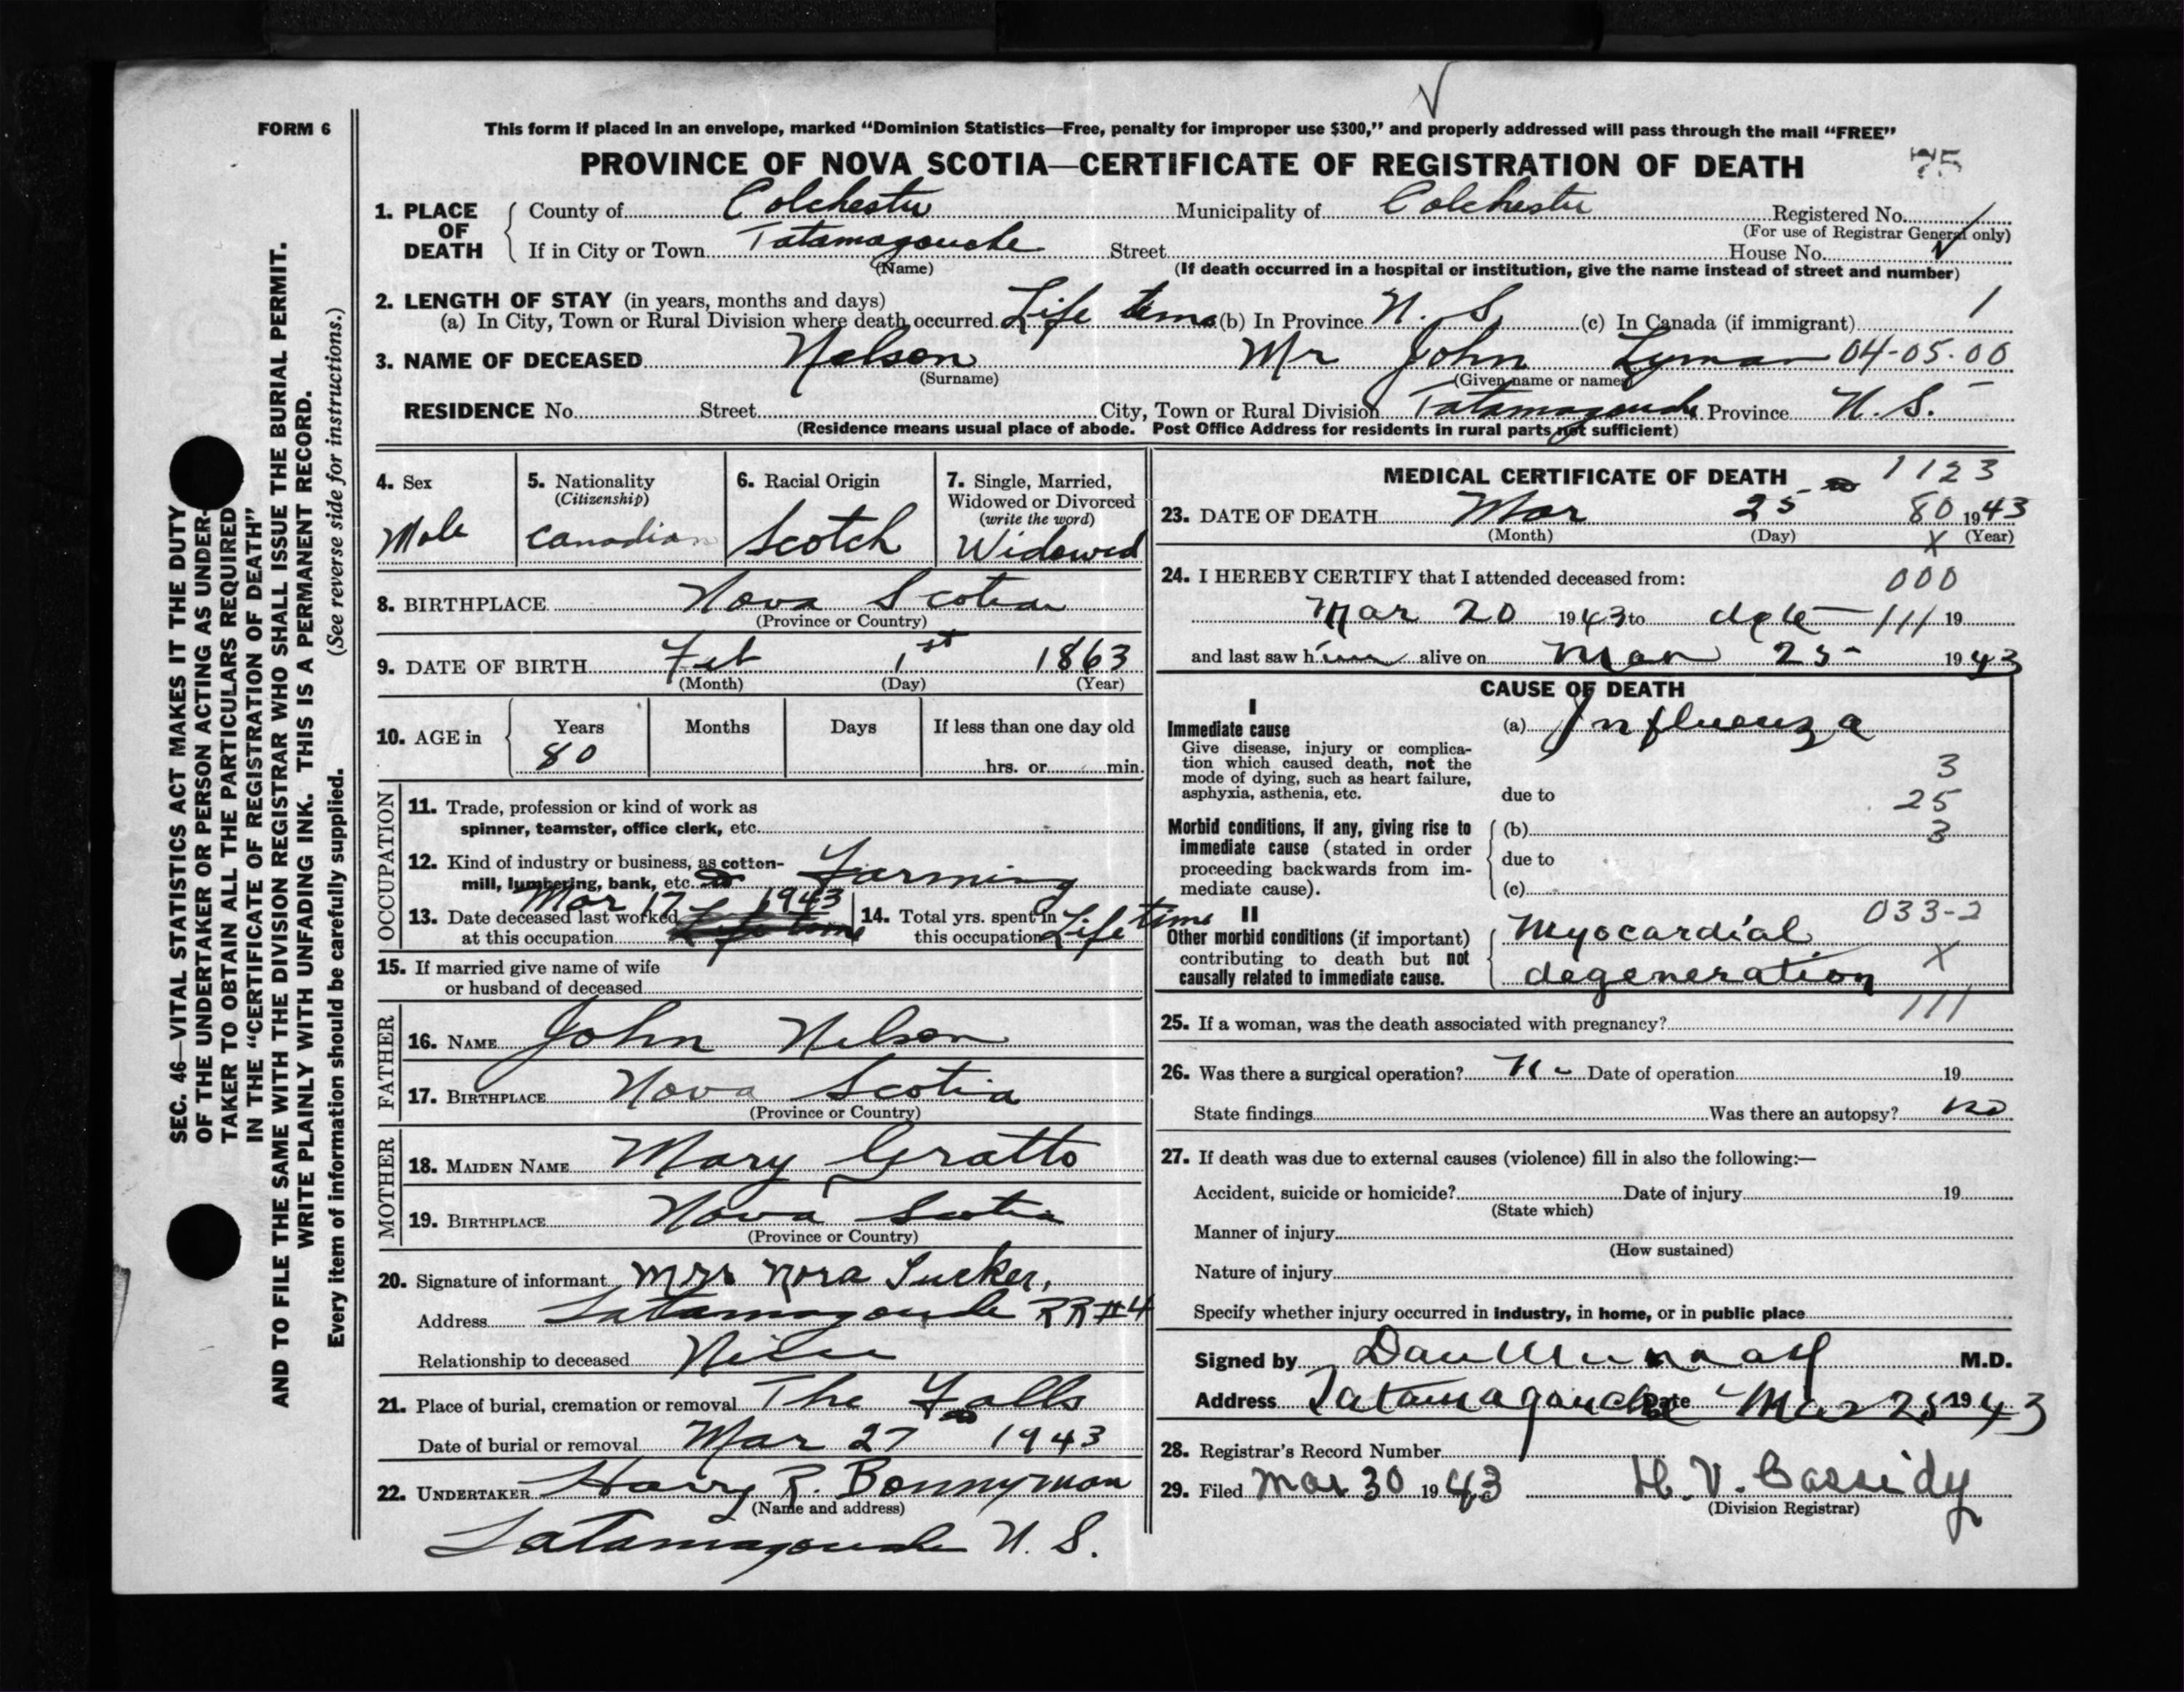 FORM 6
This form if placed in an envelope, marked "Dominion Statistics—Free, penalty for improper use $300," and properly addressed will pass through the mail "FREE"
PROVINCE OF NOVA SCOTIA—CERTIFICATE OF REGISTRATION OF DEATH
75
1. PLACE OF DEATH
County of Colchester Municipality of Colchester Registered No.
(For use of Registrar General only)
If in City or Town Tatamagouche Street House No.
(Name) (If death occurred in a hospital or institution, give the name instead of street and number)
2. LENGTH OF STAY (in years, months and days)
(a) In City, Town or Rural Division where death occurred Life time (b) In Province N. S. (c) In Canada (if immigrant) 1
3. NAME OF DECEASED Nelson Mr John Lyman 04-05-00
(Surname) (Given name or names)
RESIDENCE No. Street City, Town or Rural Division Tatamagouche Province N. S.
(Residence means usual place of abode. Post Office Address for residents in rural parts not sufficient)
4. Sex
Male
5. Nationality
(Citizenship)
Canadian
6. Racial Origin
Scotch
7. Single, Married,
Widowed or Divorced
(write the word)
Widowed
8. BIRTHPLACE Nova Scotia
(Province or Country)
9. DATE OF BIRTH Feb 1st 1863
(Month) (Day) (Year)
10. AGE in Years Months Days If less than one day old
80 hrs. or min.
OCCUPATION
11. Trade, profession or kind of work as
spinner, teamster, office clerk, etc.
12. Kind of industry or business, as cotton-
mill, lumbering, bank, etc. Farming
Mar 17 1943
13. Date deceased last worked
at this occupation Life time
14. Total yrs. spent in
this occupation Life time
15. If married give name of wife
or husband of deceased
FATHER
16. NAME John Nelson
17. BIRTHPLACE Nova Scotia
(Province or Country)
MOTHER
18. MAIDEN NAME Mary Gratto
19. BIRTHPLACE Nova Scotia
(Province or Country)
20. Signature of informant Mrs Nora Tucker,
Address Tatamagouche RR#4
Relationship to deceased Niece
21. Place of burial, cremation or removal The Falls
Date of burial or removal Mar 27 1943
22. UNDERTAKER Harry R. Bonnyman
(Name and address)
Tatamagouche N. S.
MEDICAL CERTIFICATE OF DEATH 1123
23. DATE OF DEATH Mar 25 80 1943
(Month) (Day) X (Year)
24. I HEREBY CERTIFY that I attended deceased from: 000
Mar 20 1943 to date 111 19
and last saw him alive on Mar 25 1943
CAUSE OF DEATH
I
Immediate cause
Give disease, injury or complica-
tion which caused death, not the
mode of dying, such as heart failure,
asphyxia, asthenia, etc.
(a) Influenza
3
due to 25
Morbid conditions, if any, giving rise to
immediate cause (stated in order
proceeding backwards from im-
mediate cause).
(b) 3
due to
(c)
II
Other morbid conditions (if important)
contributing to death but not
causally related to immediate cause.
033-2
Myocardial
X
degeneration
111
25. If a woman, was the death associated with pregnancy?
26. Was there a surgical operation? No Date of operation 19
State findings Was there an autopsy? no
27. If death was due to external causes (violence) fill in also the following:—
Accident, suicide or homicide? Date of injury 19
(State which)
Manner of injury
(How sustained)
Nature of injury
Specify whether injury occurred in industry, in home, or in public place
Signed by Dan Murray M.D.
Address Tatamagouche Date Mar 25 1943
28. Registrar's Record Number
29. Filed Mar 30 1943 H. V. Cassidy
(Division Registrar)
SEC. 46—VITAL STATISTICS ACT MAKES IT THE DUTY
OF THE UNDERTAKER OR PERSON ACTING AS UNDER-
TAKER TO OBTAIN ALL THE PARTICULARS REQUIRED
IN THE "CERTIFICATE OF REGISTRATION OF DEATH"
AND TO FILE THE SAME WITH THE DIVISION REGISTRAR WHO SHALL ISSUE THE BURIAL PERMIT.
WRITE PLAINLY WITH UNFADING INK. THIS IS A PERMANENT RECORD.
Every item of information should be carefully supplied. (See reverse side for instructions.)